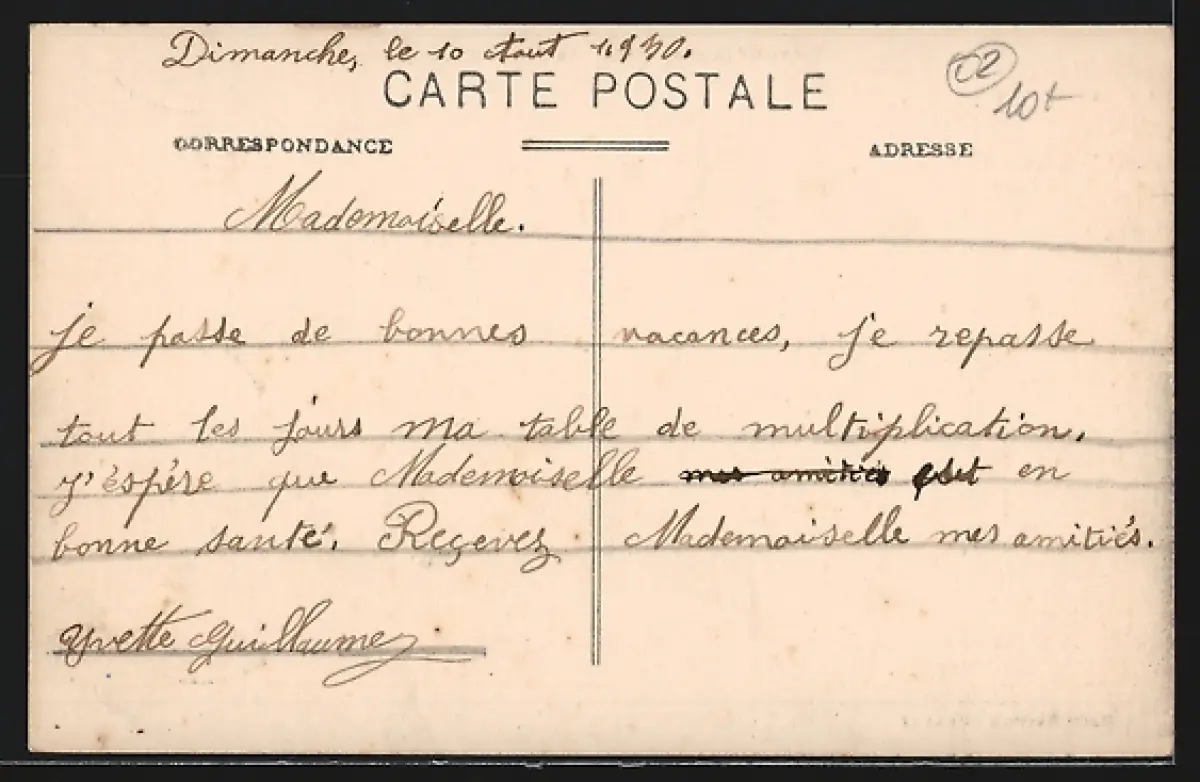 Dimanche, le 10 Aout 1930.
CARTE POSTALE
52
10t
CORRESPONDANCE
ADRESSE
Mademoiselle.
je passe de bonnes vacances, je repasse
tout les jours ma table de multiplication.
j'éspére que Mademoiselle mes amitiés est en
bonne santé. Reçevez Mademoiselle mes amitiés.
Yvette Guillaume